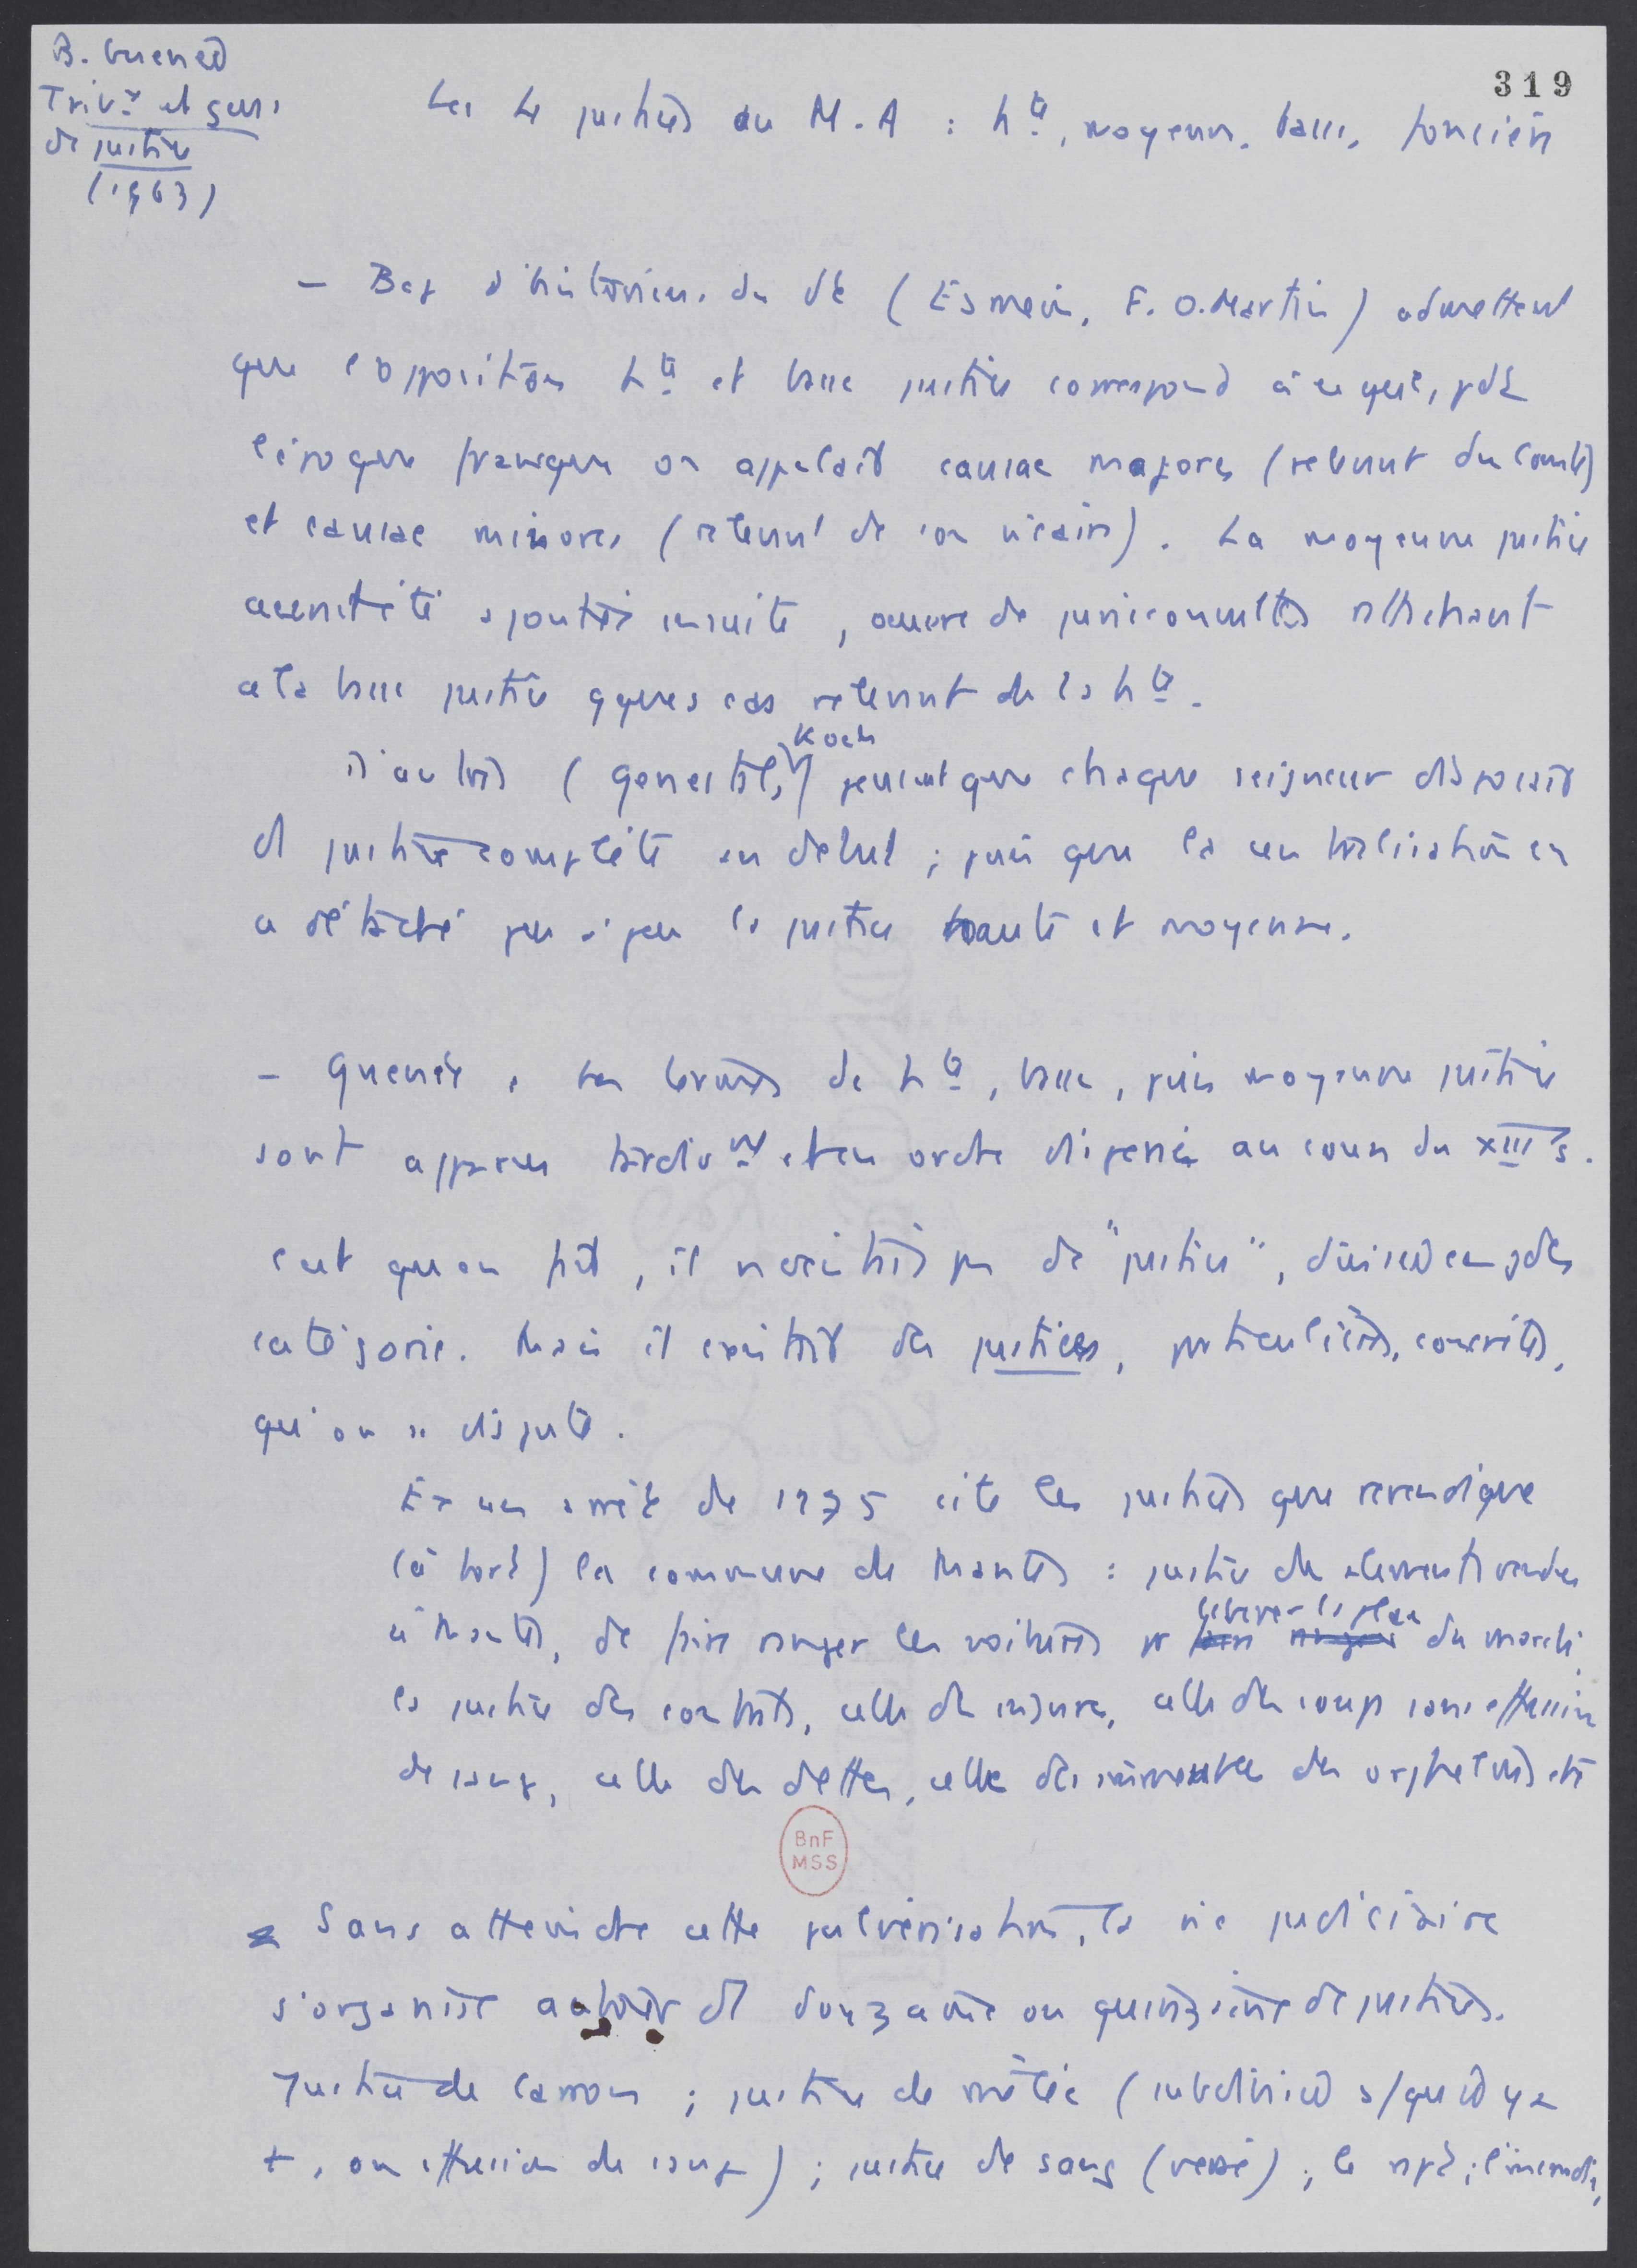 B. Guenée
Trib^x et gens
de justice
(1963)
319
Les 4 justices au M.A : h^te, moyenne, basse, foncière
– Bcp d'historiens du dt (Esmein, F. O. Martin) admettent
que l'opposition h^te et basse justice correspond à ce que, pdt
l'époque franque on appelait causae majores (relevant du comte)
et causae minores (relevant de son vicaire). La moyenne justice
aurait été ajoutée ensuite, oeuvre de jurisconsultes rattachant
a la basse justice qques cas relevant de la h^te.
D'autres (Genestal, Koch) pensent que chaque seigneur disposait
d justice complète au début ; puis que la centralisation en
a détaché peu à peu la justice haute et moyenne.
– Guenée : les termes de h^te, basse, puis moyenne justice
sont apparus tardiv^mt et en ordre dispersé au cours du XIII s.
C'est qu'en fait, il n'existait pas de "justice", divisée en gdes
catégories. Mais il existait des justices, particulières, concrètes,
qu'on se dispute.
Ex un arrêt de 1275 cite les justices que revendique
(à tort) la commune de Mantes : justice des aliments vendus
à Mantes, de faire ranger les voitures pr libérer la place du marché,
la justice des contrats, celle des injures, celle des coups sans effusion
de sang, celle des dettes, celle des immeubles des orphelins etc
Sans atteindre cette pulvérisation, la vie judiciaire
s'organise autour d' douzaine ou quinzaine de justices.
Justice de larron ; justice de mêlée (subdivisée s/ qu'il y a
+, ou effusion de sang) ; justice de sang (versé) ; le rapt ; l'incendie,